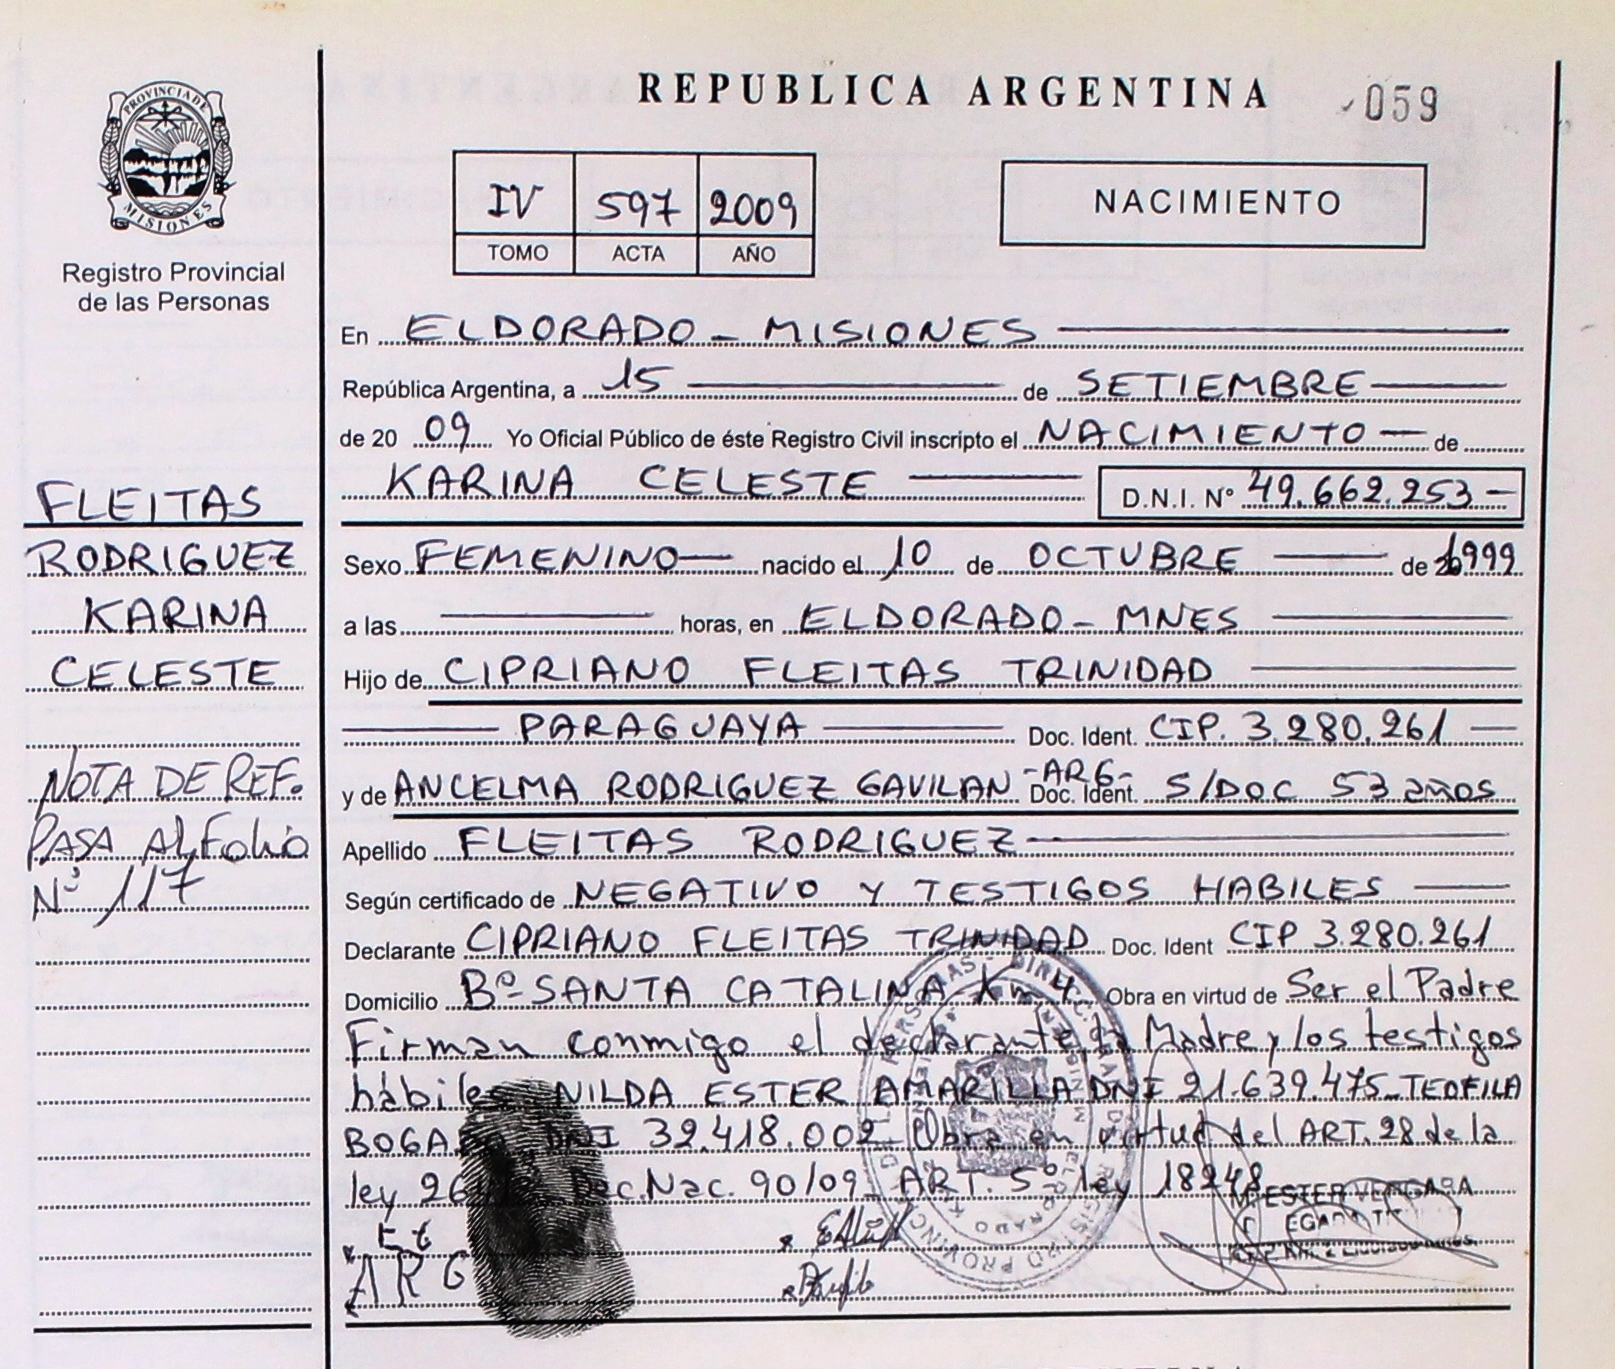 REPUBLICA ARGENTINA
059
PROVINCIA DE MISIONES
Registro Provincial
de las Personas
IV 597 2009
TOMO ACTA AÑO
NACIMIENTO
En ELDORADO - MISIONES
República Argentina, a 15 de SETIEMBRE
de 20 09 Yo Oficial Público de éste Registro Civil inscripto el NACIMIENTO de
KARINA CELESTE D.N.I. Nº 49.662.253
Sexo FEMENINO nacido el 10 de OCTUBRE de 1999
a las horas, en ELDORADO - MNES
Hijo de CIPRIANO FLEITAS TRINIDAD
PARAGUAYA Doc. Ident. CIP. 3.280.261
y de ANCELMA RODRIGUEZ GAVILAN -ARG- Doc. Ident. S/DOC 53 años
Apellido FLEITAS RODRIGUEZ
Según certificado de NEGATIVO Y TESTIGOS HABILES
Declarante CIPRIANO FLEITAS TRINIDAD Doc. Ident CIP 3.280.261
Domicilio Bº SANTA CATALINA Km 4 Obra en virtud de Ser el Padre
Firman conmigo el declarante, la Madre y los testigos
hábiles NILDA ESTER AMARILLA DNI 21.639.475 - TEOFILA
BOGADO DNI 32.418.002 Obra en virtud del ART. 28 de la
ley Dec. Nac. 90/09 - ART. 5º ley 18248
ARG
M. ESTER VERGARA
FLEITAS
RODRIGUEZ
KARINA
CELESTE
NOTA DE REF.
PASA AL Folio
Nº 117